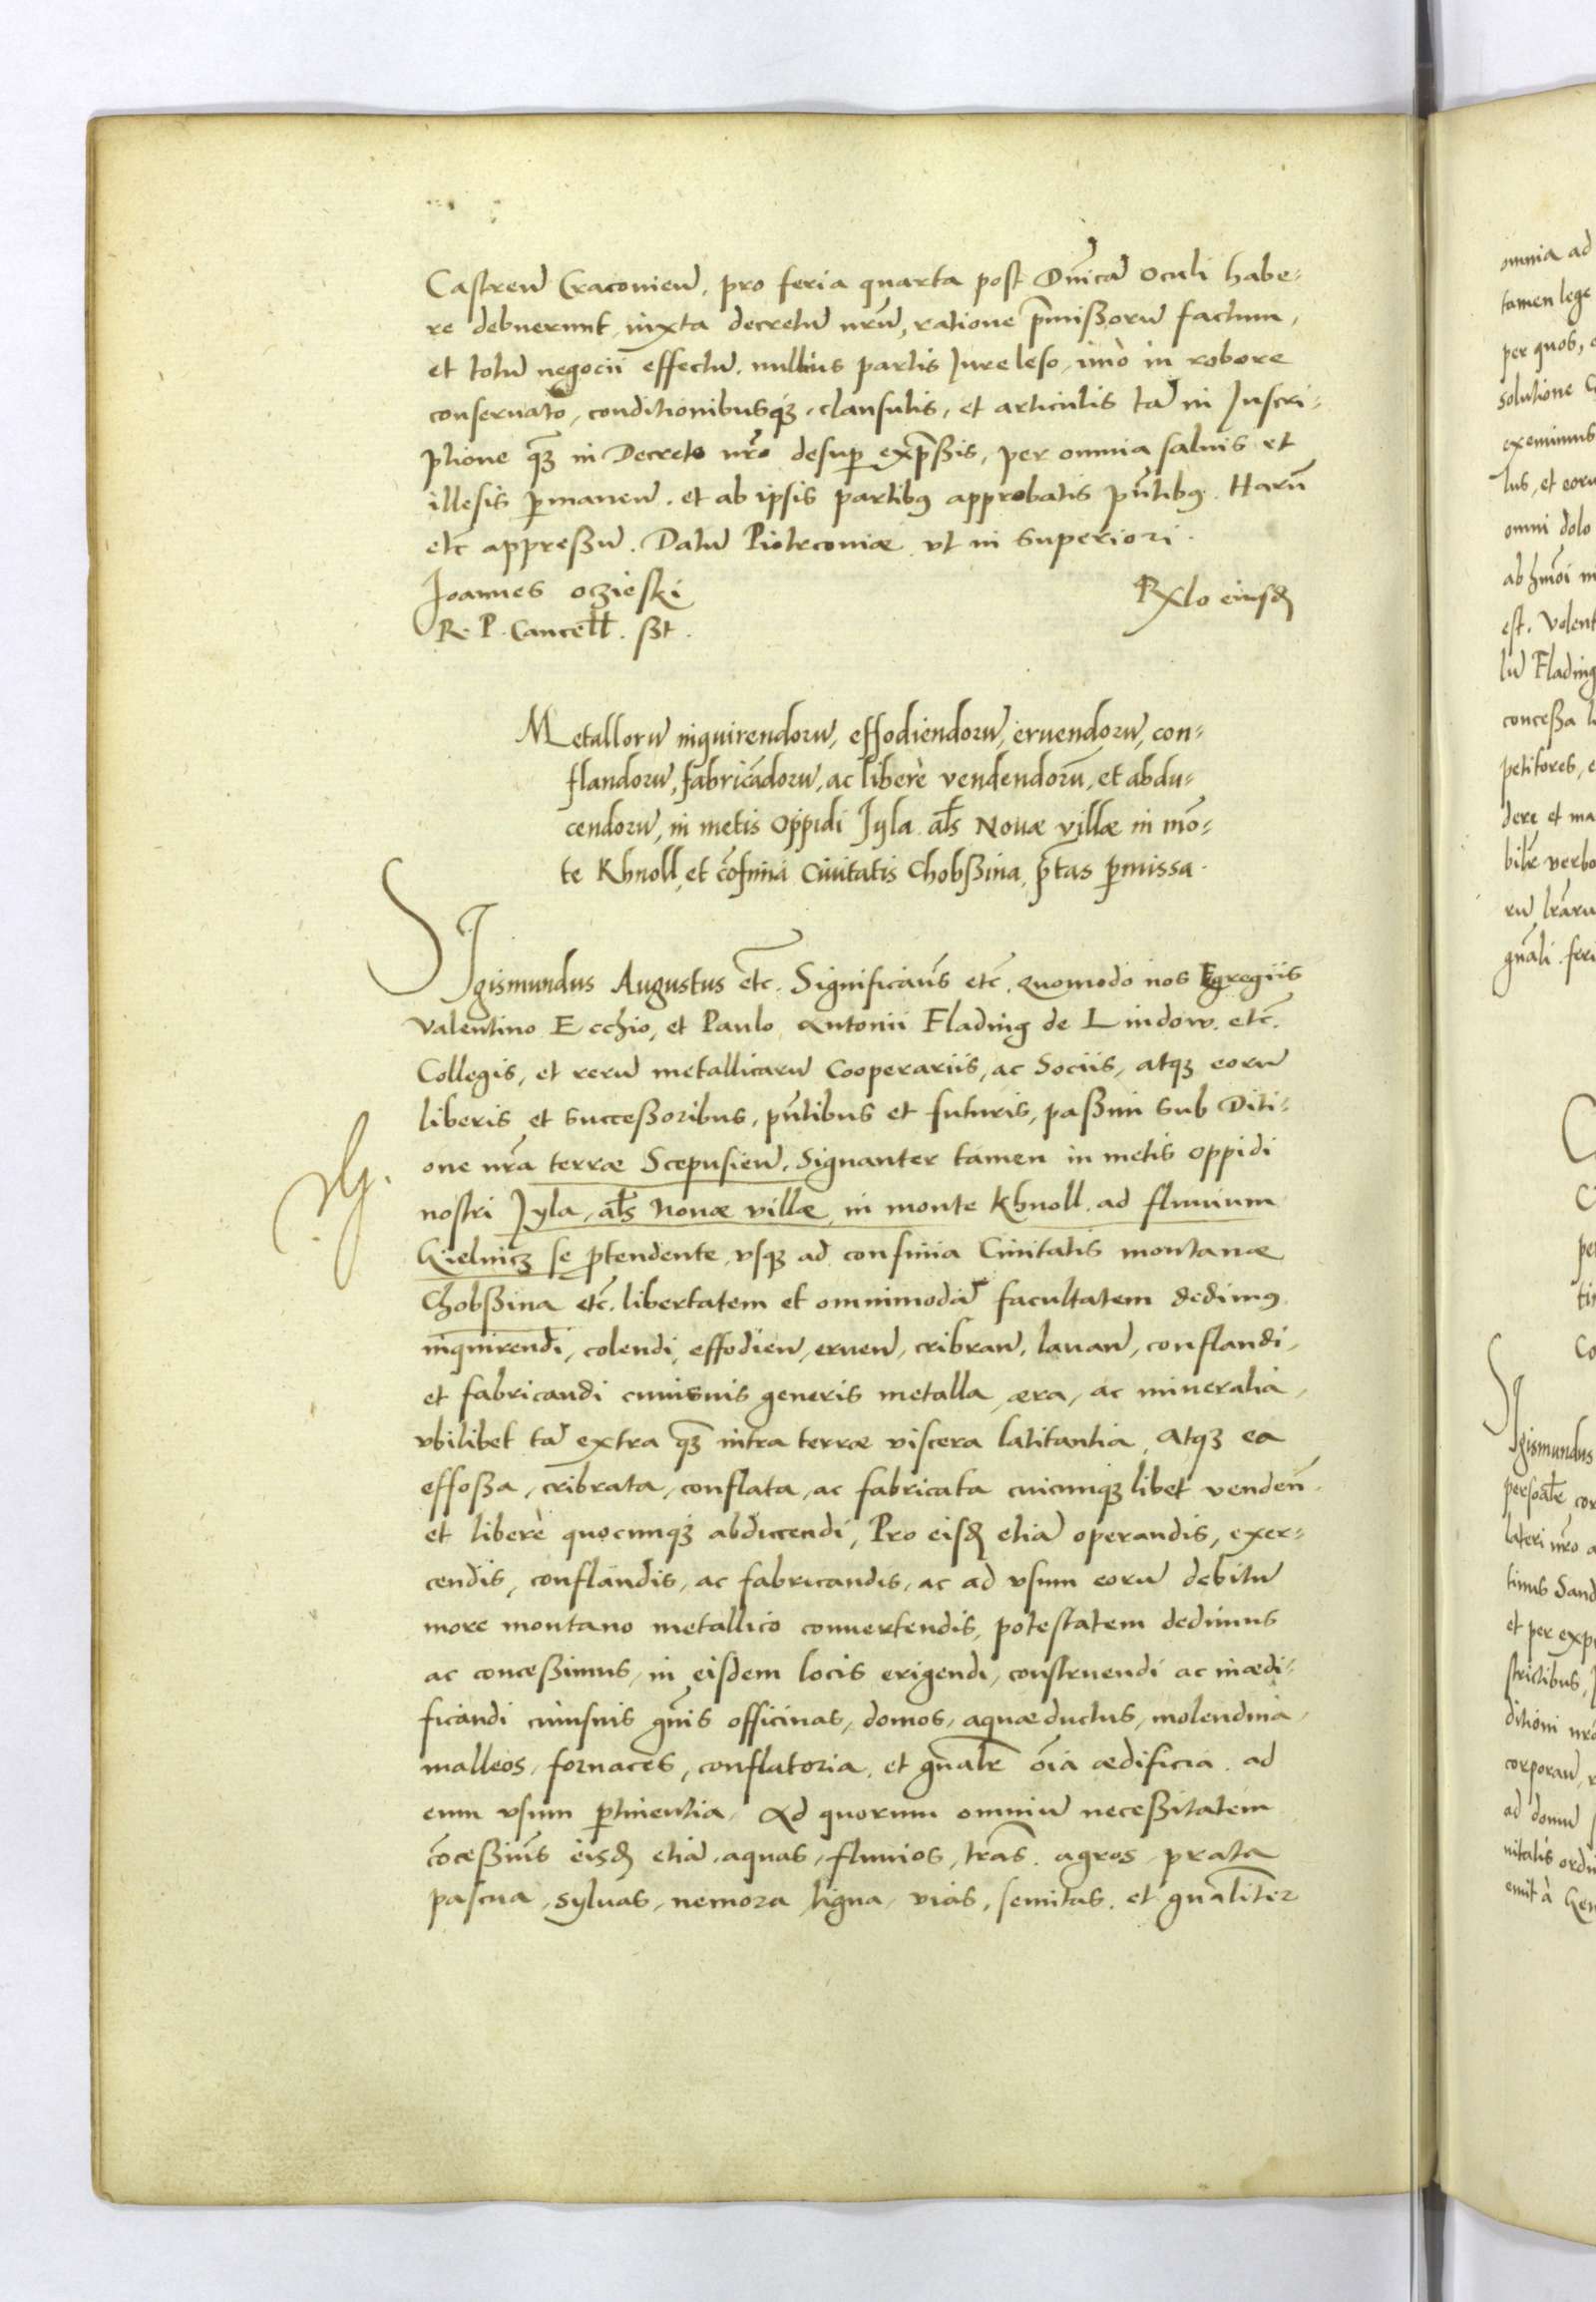 Castren̄ Cracovien̄, pro feria quarta post Dn̄icā Oculi habe-
re debuerunt, iuxta decretū nr̄ū, ratione p̄missorū factum,
et totū negocii effectū, nullius partis Jure leso, imò in robore
conservato, conditionibusqꝫ, clausulis, et articulis tā in Inscri-
ptione qꝫ in Decreto nr̄o desuꝑ exp̄ssis, per omnia salvis et
illesis ꝑmanen̄. et ab ipsis partibꝰ approbatis pn̄tibꝰ. Harū
etc̄ appressū. Datū Piotrconiæ vt in superiori.
Joannes oczieski
R. P. Cancell̄. sst.
Rl̄o eiusd̄
Metallorū inquirendorū, effodiendorū, ervendorū, con-
flandorū, fabricādorū, ac liberè vendendorū, et abdu-
cendorū, in metis Oppidi Jyla al̄s Nouæ villæ in mō-
te Khnoll, et cōfinia Civitatis Chobssina, p̄tas ꝑmissa.
SIgismundus Augustus etc̄. Significam̄s etc̄. quomodo nos Egregiis
Valentino Ecchio, et Paulo Antonii Flading de Lindow. etc̄.
Collegis, et rerū metallicarū Cooperariis, ac Sociis, atqꝫ eorū
liberis et successoribus, pn̄tibus et futuris, passim sub Diti-
one nr̄a terræ Scepusien̄. Signanter tamen in metis oppidi
nostri Jyla, al̄s Nouæ villæ, in monte Khnoll, ad fluvium
Gielnicz se ꝓtendente, vsqꝫ ad confinia Civitatis montanæ
Chobssina etc̄. libertatem et omnimodā facultatem dedimꝰ
inquirendi, colendi, effodien̄, eruen̄, cribran̄, lavan̄, conflandi,
et fabricandi cuiusvis generis metalla, æra, ac mineralia,
vbilibet tā extra qꝫ intra terræ viscera latitantia, Atqꝫ ea
effossa, cribrata, conflata, ac fabricata cuicunqꝫ libet venden̄.
et liberè quocunqꝫ abducendi, Pro eisd̄ etiā operandis, exer-
cendis, conflandis, ac fabricandis, ac ad vsum eorū debitū
more montano metallico convertendis, potestatem dedimus
ac concessimus, in eisdem locis erigendi, construendi ac inædi-
ficandi cuiusvis gn̄is officinas, domos, aquæductus, molendina,
malleos, fornaces, conflatoria, et gn̄alr̄ oīa ædificia, ad
eum vsum ꝑtinentia, Ad quorum omniū necessitatem
cōcessim̄s eisd̄ etiā, aquas, fluvios, tr̄as, agros, prata
pascua, sylvas, nemora, ligna, vias, semitas, et gn̄aliter
omnia ad
tamen lege
per quos,
solutione
eximimus
tus, et eorū
omni dolo
est. Valent
Flading
concessa
petitores,
dere et ma
rū lr̄arū
Igismundus
lateri nr̄o
et per exp
strictibus,
ditioni nr̄
corporan̄,
ad domū